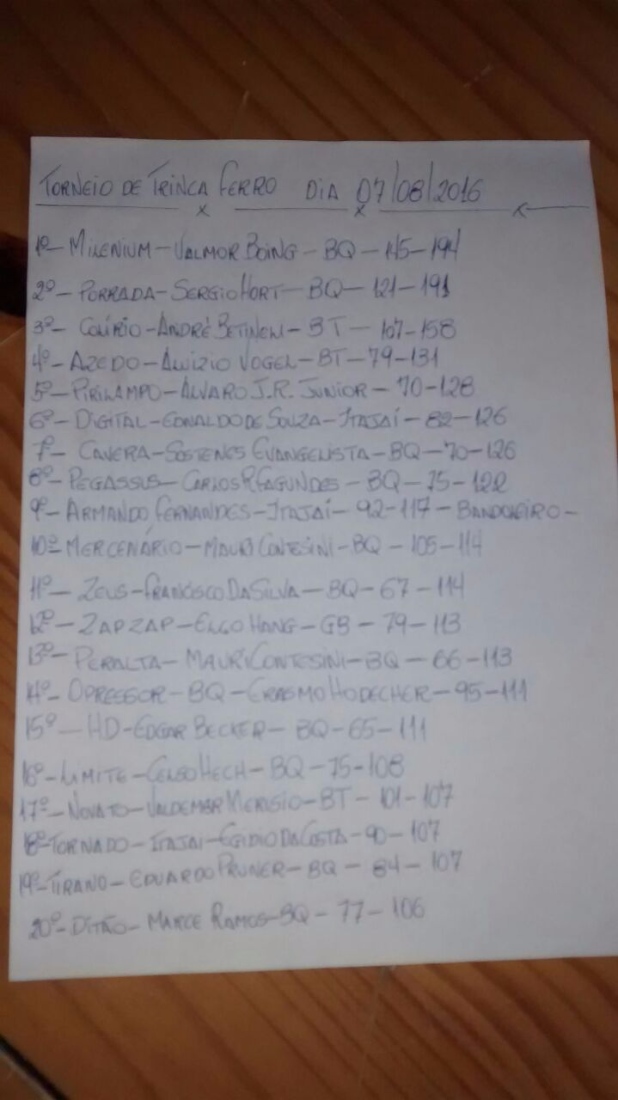 TORNEIO DE TRINCA FERRO DIA 07/08/2016
x x x
1º - MILENIUM - VALMOR BOING - BQ - 145 - 194
2º - PORRADA - SERGIO HORT - BQ - 121 - 191
3º - COLÍRIO - ANDRÉ - BT - 107 - 158
4º - AZEDO - ALVIZIO VOGEL - BT - 79 - 131
5º - PIRILAMPO - ALVARO J.R. JUNIOR - 70 - 128
6º - DIGITAL - EDNALDO DE SOUZA - ITAJAÍ - 82 - 126
7º - CAVERA - SOSTENES EVANGELISTA - BQ - 70 - 126
8º - PEGASSUS - CARLOS R FAGUNDES - BQ - 75 - 122
9º - ARMANDO FERNANDES - ITAJAÍ - 92 - 117 - BANDOLEIRO -
10º MERCENÁRIO - MAURI CONTESINI - BQ - 105 - 114
11º - ZEUS - FRANCISCO DA SILVA - BQ - 67 - 114
12º - ZAP ZAP - ELGO HANG - GB - 79 - 113
13º - PERALTA - MAURI CONTESINI - BQ - 66 - 113
14º - OPREESOR - BQ - ERASMO HODECHER - 95 - 111
15º - HD - EDGAR BECKER - BQ - 65 - 111
16º - LIMITE - CELSO HECH - BQ - 75 - 108
17º - NOVATO - VALDEMAR MERISIO - BT - 101 - 107
18º TORNADO - ITAJAI - EGIDIO DA COSTA - 90 - 107
19º - TIRANO - EDUARDO PRUNER - BQ - 84 - 107
20º - DITÃO - MARCE RAMOS - BQ - 77 - 106